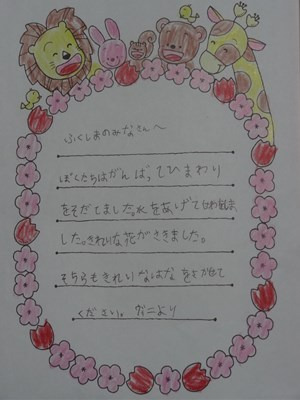 ふくしまのみなさんへ
ぼくたちはがんばってひまわり
をそだてました。水をあげて
した。きれいな花がさきました。
そちらもきれいなはなを
ください。 より